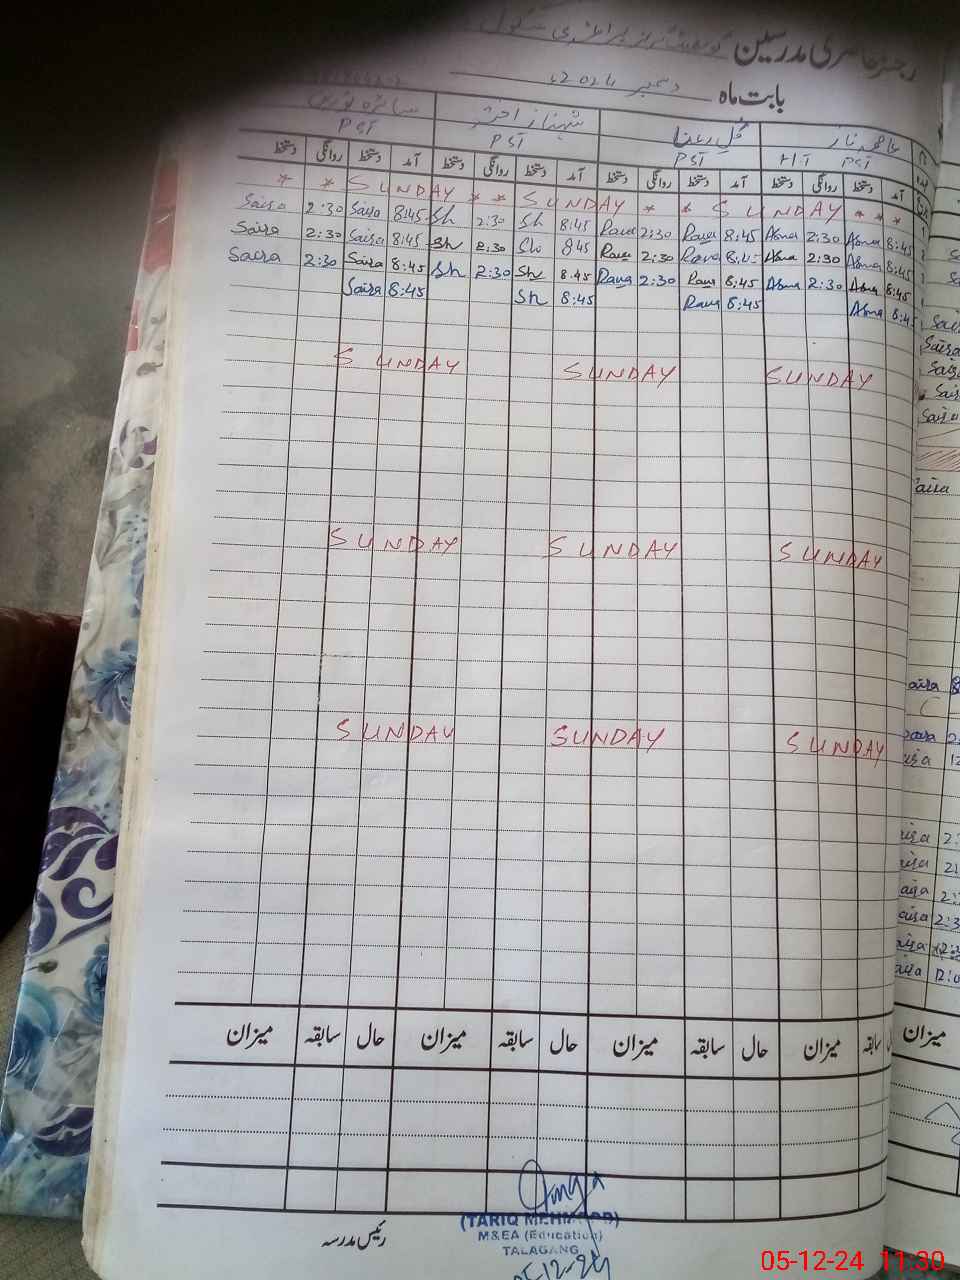 رجسٹر حاضری مدرسین گورنمنٹ گرلز پرائمری سکول
بابت ماہ دسمبر 2024ء
عاصمہ ناز گل رعنا شہناز اختر سائرہ نورین
PST H T PST PST PST
آمد دستخط روانگی دستخط آمد دستخط روانگی دستخط آمد دستخط روانگی دستخط آمد دستخط روانگی دستخط
* * SUNDAY * * SUNDAY * * SUNDAY * * *
Saira 2:30 Saira 8:45 Sh 2:30 Sh 8:45 Rana 2:30 Rana 8:45 Asma 2:30 Asma 8:45
Saira 2:30 Saira 8:45 Sh 2:30 Sh 845 Rana 2:30 Rana 8:45 Asma 2:30 Asma 8:45
Saira 2:30 Saira 8:45 Sh 2:30 Sh 8:45 Rana 2:30 Rana 8:45 Asma 2:30 Asma 8:45
Saira 8:45 Sh 8:45 Rana 8:45 Asma 8:45
SUNDAY SUNDAY SUNDAY
SUNDAY SUNDAY SUNDAY
SUNDAY SUNDAY SUNDAY
حال سابقہ میزان حال سابقہ میزان حال سابقہ میزان سابقہ میزان
میزان
رئیس مدرسہ
(TARIQ MEHMOOD)
M&EA (Education)
TALAGANG
05-12-24
05-12-24 11:30